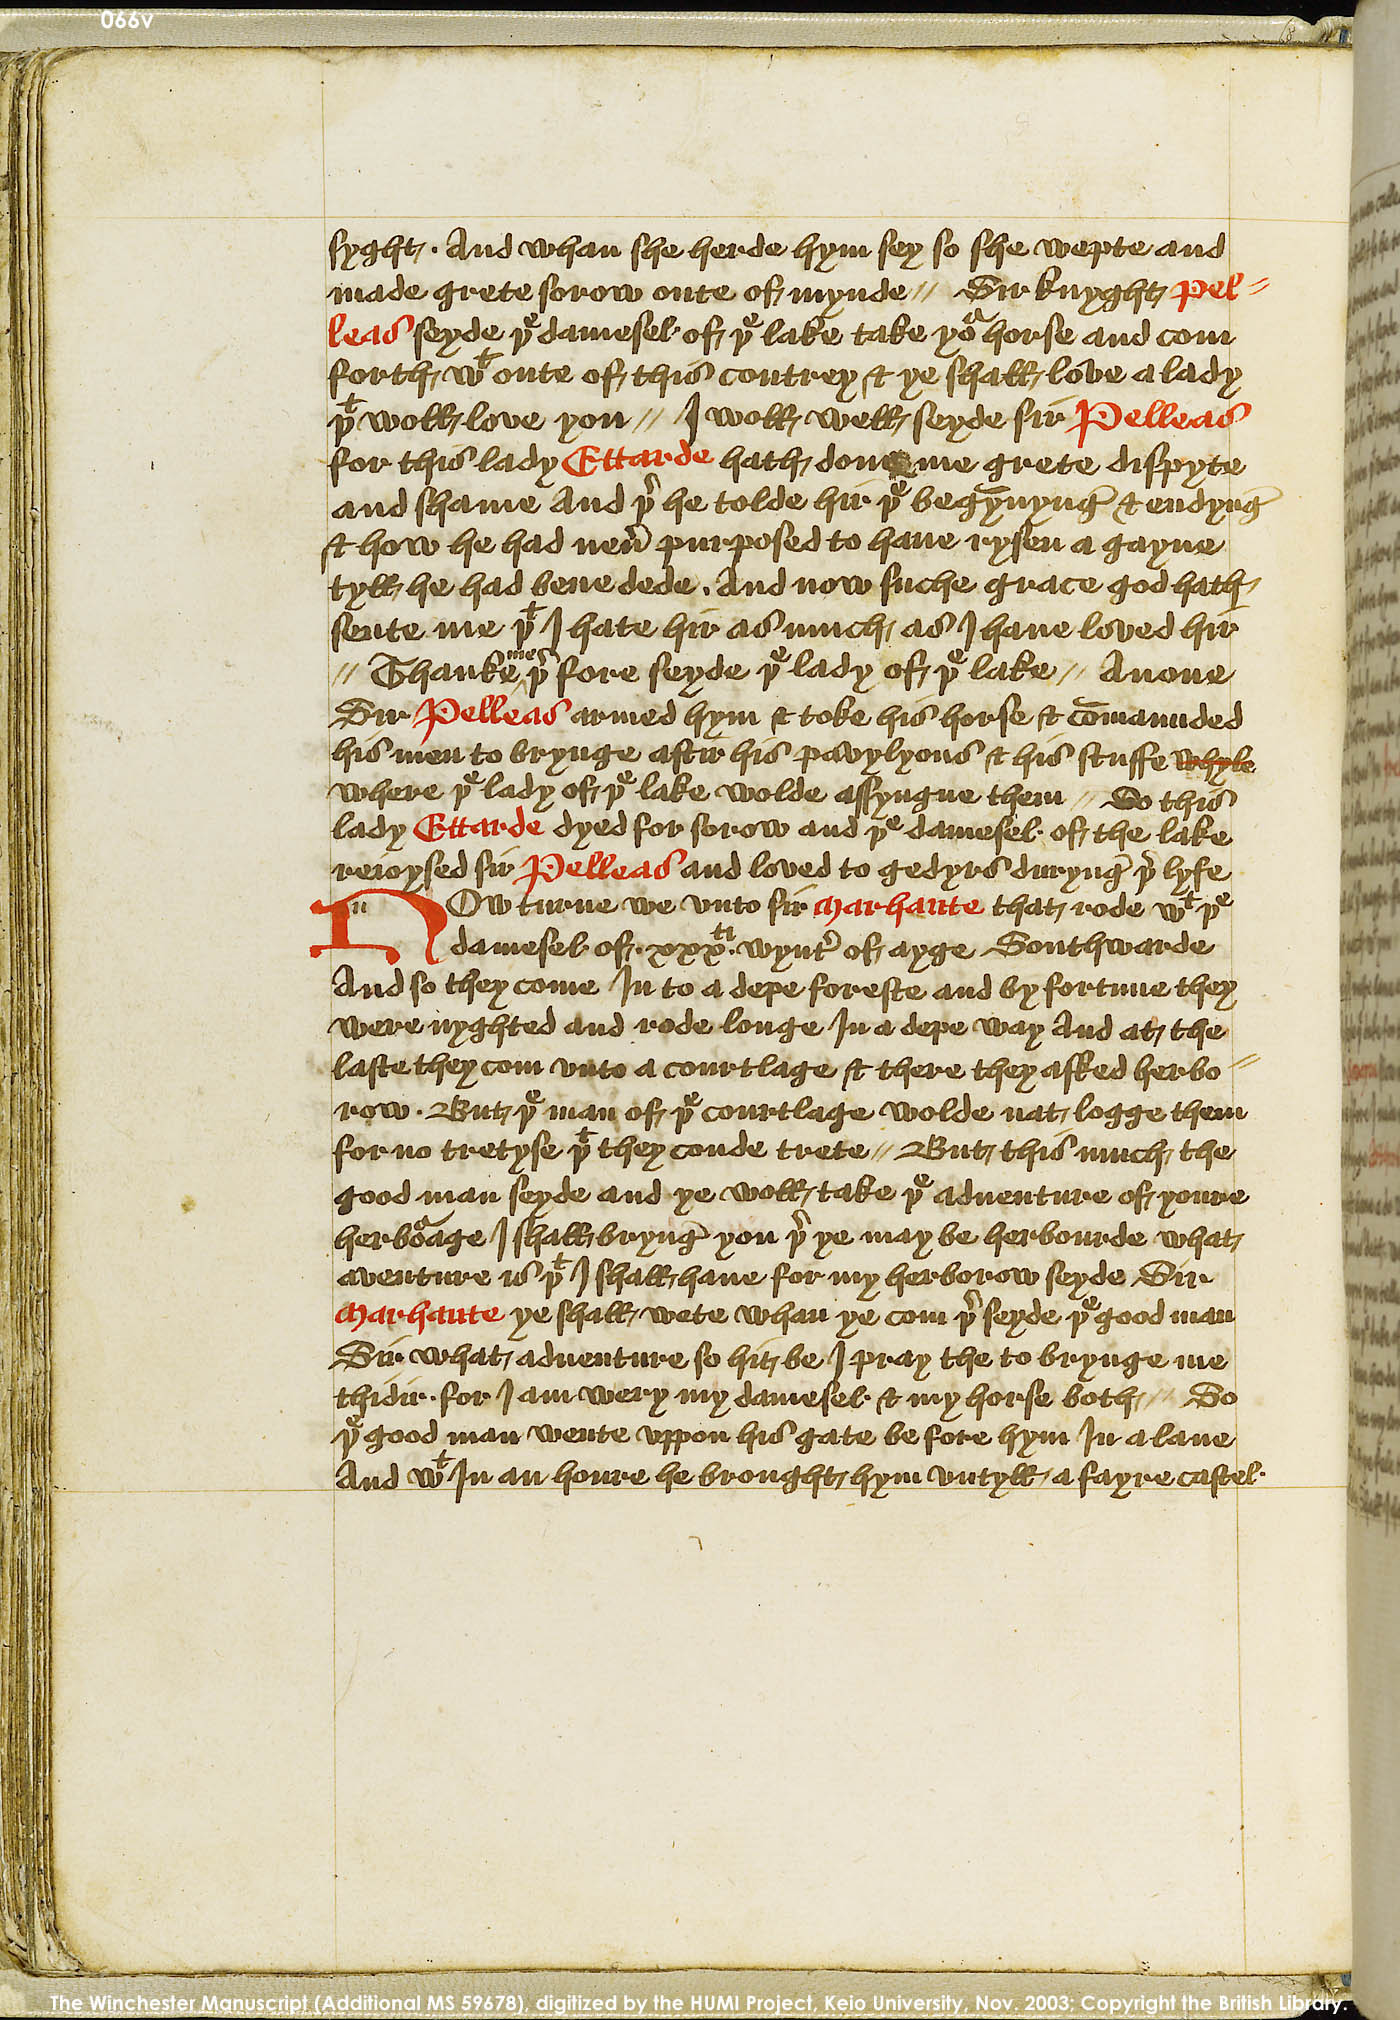 066v
syght · And whan she herde hym sey so she wepte and
made grete sorow oute of mynde // Sir knyght Pel=
leas seyde þᵉ damesel of þᵉ lake take yoᵃ horse and com
forth wᵗ oute of this contrey & ye shall love a lady
þᵗ woll love you // I woll well seyde sir Pelleas
for this lady Ettarde hath done me grete dispyte
and shame And þʳ he tolde hir þᵉ begȳnyng & endyng
& how he had neuʳ purposed to haue rysen a gayne
tyll he had bene dede . And now suche grace god hath
sente me þᵗ I hate hir as much as I haue loved hir
// Thanke me þʳ fore seyde þᵉ lady of þᵉ lake // Anone
Sir Pelleas armed hym & toke his horse & cōmaunded
his men to brynge aftir his pavylyons & his stuffe whyle
where þᵉ lady of þᵉ lake wolde assyngne them // So this
lady Ettarde dyed for sorow and þᵉ damesel of the lake
reioysed sir Pelleas and loved to gedyrs duryng þʳ lyfe
n NOw turne we vnto sir Marhaute that rode wᵗ þᵉ
damesel of · xxxᵗⁱ · wyntʳ of ayge Southwarde
And so they come In to a depe foreste and by fortune they
were nyghted and rode longe In a depe way And at the
laste they com vnto a courtlage & there they asked herbo=
row · But þᵉ man of þᵉ courtlage wolde nat logge them
for no tretyse þᵗ they coude trete // But this much the
good man seyde and ye woll take þᵉ aduenture of youre
herboᵃage I shall bryng you þʳ ye may be herbourde what
aventure is þᵗ I shall haue for my herborow seyde Sir
Marhaute ye shall wete whan ye com þʳ seyde þᵉ good man
Sir what aduenture so hit be I pray the to brynge me
thidir · for I am wery my damesel & my horse both // So
þᵉ good man wente vppon his gate be fore hym In a lane
And wᵗ In an houre he brought hym vntyll a fayre castel ·
The Winchester Manuscript (Additional MS 59678), digitized by the HUMI Project, Keio University, Nov. 2003; Copyright the British Library.